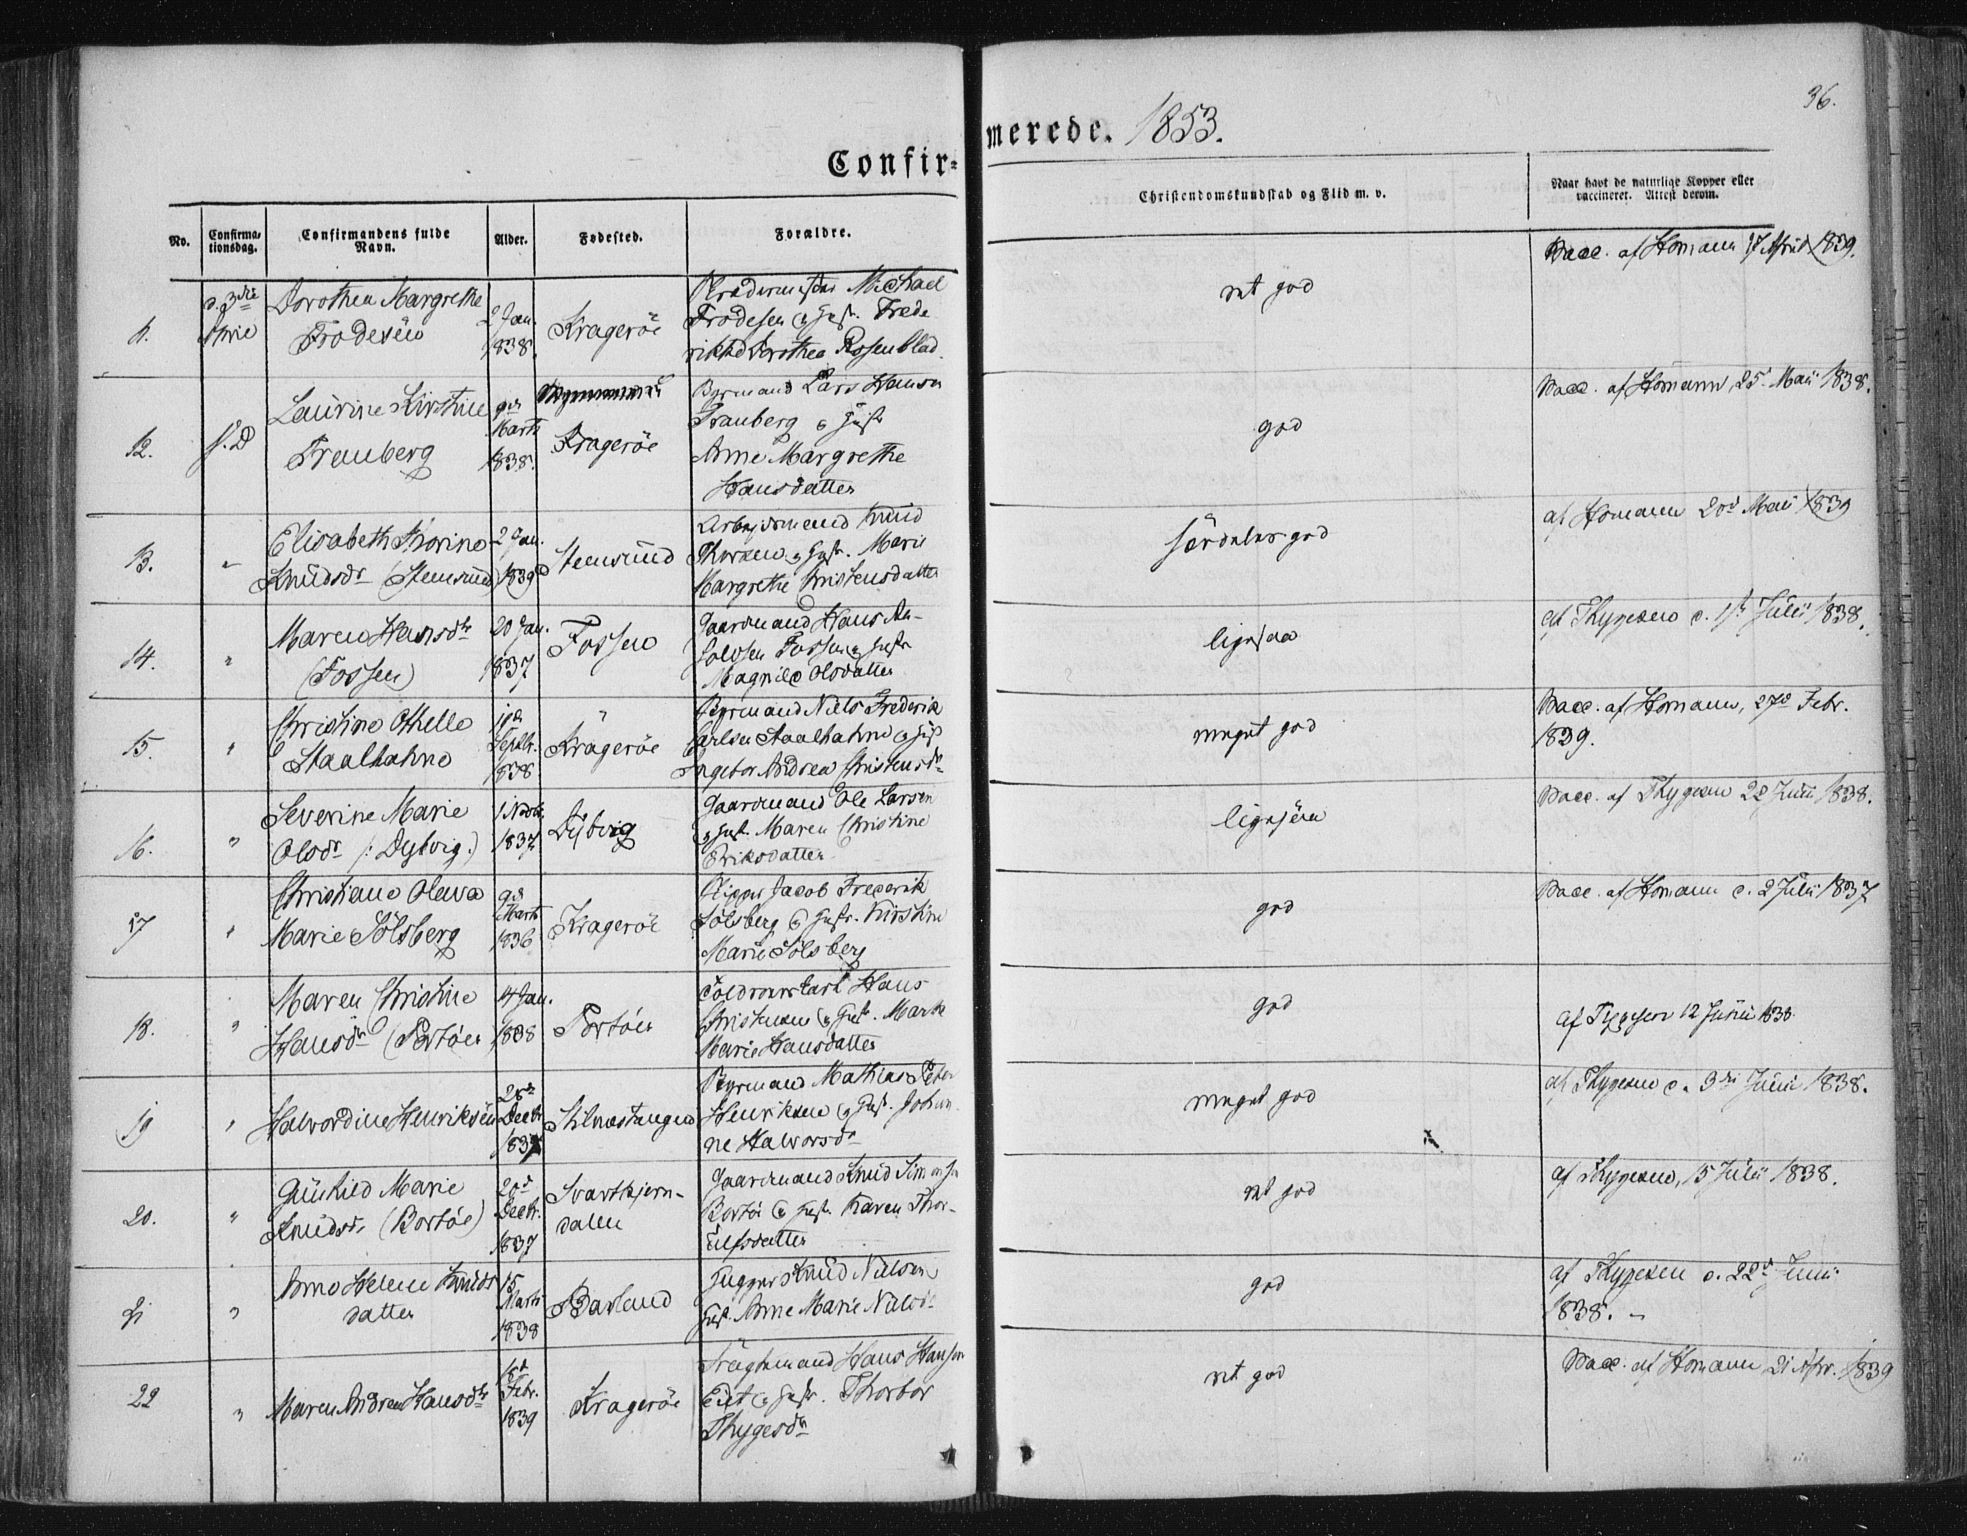 36.
Confir-
merede. 1853.
No.
Confirma-
tionsdag.
Confirmandens fulde
Navn.
Alder.
Fødested.
Forældre.
Christendomskundskab og Flid m. v.
Naar havt de naturlige Kopper eller
vaccineret. Attest derom.
11.
d. 3die
Dorothea Margrethe
Frodesen
2 Jan.
1838.
Krageröe
Michael
Frodesen og Hust. Frede
rikke Dorothea Rosenblad.
ret god
Vacc. af Homann 17 April 1839.
12.
s. D
Laurine Kirstine
Franberg
9de
Marts
1838.
Krageröe
Styrmand Lars Hansen
Franberg og Hust
Anne Margrethe
Hansdatter
god
Vacc. af Homann 25 Maii 1838.
13.
"
Elisabeth Thorine
Knudsdr (Stensund)
2 Jan.
1839
Stensund
Arbejdsmand Knud
Thorsen og Hust. Maria
Margrethe Christensdatter
særdeles god
af Homann 20d Maii 1839
14.
"
Maren Hansdtr
(Fossen)
20 Jan.
1837
Fossen
Gaardmand Hans An-
Fossen og Hust
Magnild Olsdatter
ligesaa
af Thygesen d. 1ste Julii 1838.
15.
"
Christine Othelle
Staalhahne
Septbr.
1838
"
Krageröe
Styrmand Niels Frederik
Carlsen Staalhahne og Hust
Ingebor Andrea Christensdr
meget god
Vacc. af Homann, 27d Febr.
1839.
16.
"
Severine Marie
Olsdr (: Dybvig.)
1 Novbr
1837
Dybvig
Gaardmand Ole Larsen
og Hust. Maren Christine
Eriksdatter
Vacc. af Thygesen 22 Junii 1838.
17
"
Christiane Olava
Marie Sölsberg
9de
Marts
1836
Krageröe
Skipper Jacob Frederik
Sölsberg og Hustr. Kirstine
Marie Sölsberg
god
Vacc. af Homann d. 2 Julii 1837
18.
"
Maren Christine
Hansdr (Portöer)
14 Jan.
1838
Portöer
Toldroerskarl Hans
Christensen og Hust. Marthe
Marie Hansdatter
god
af Thygesen 12 Junii 1838
19
"
Halvordine Henriksen
28de
Decbr
1837
Stilnestangen
Styrmand Mathias Peter
Henriksen og Hust. Johan
ne Halvorsdr
meget god
af Thygesen d. 3die Junii 1838.
20.
"
Gunhild Marie
Knudsdr. (Bortöe)
20d
Decbr.
1837
Svartkjern-
dalen
Gaardmand Knud Simonsen
Bortöe og Hustr. Karen Thor-
ulfsdatter
ret god
af Thygesen, 15 Julii 1838.
21
"
Anne Helene Knuds
datter
15
Marts
1838
Barland
Knud Nielsen
Hust. Anne Marie Nilsdr
god
af Thygesen d. 22d Junii
1838. -
22
"
Maren Andrea Hansdtr
Febr.
1839
Krageröe
Fragtemand Hans Hansen
Eiet og Hustr. Thorbor
Thygesdr
ret god
Vacc. af Homann 21 Apr. 1839